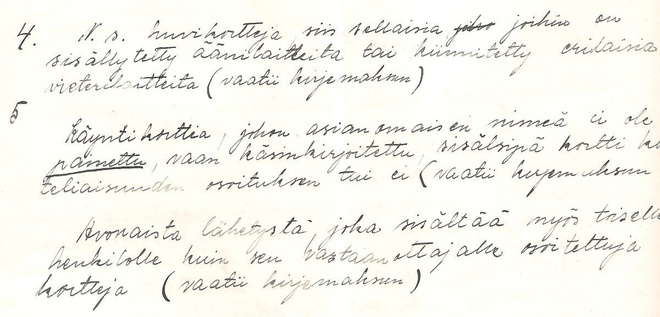 4. N. s. huvikortteja siis sellaisia joko joihin on
sisällytetty äänilaitteita tai kiinnitetty erilaisia
vieterilaitteita (vaatii kirjemaksun)
5
Käyntikorttia, johon asianomaisen nimeä ei ole
painettu, vaan käsinkirjoitettu, sisälsipä kortti ko
teliaisuuden osoituksen tai ei (vaatii kirjemaksun
Avonaista lähetystä, joka sisältää myös toiselle
henkilölle kuin sen vastaanottajalle osoitettuja
kortteja (vaatii kirjemaksun)